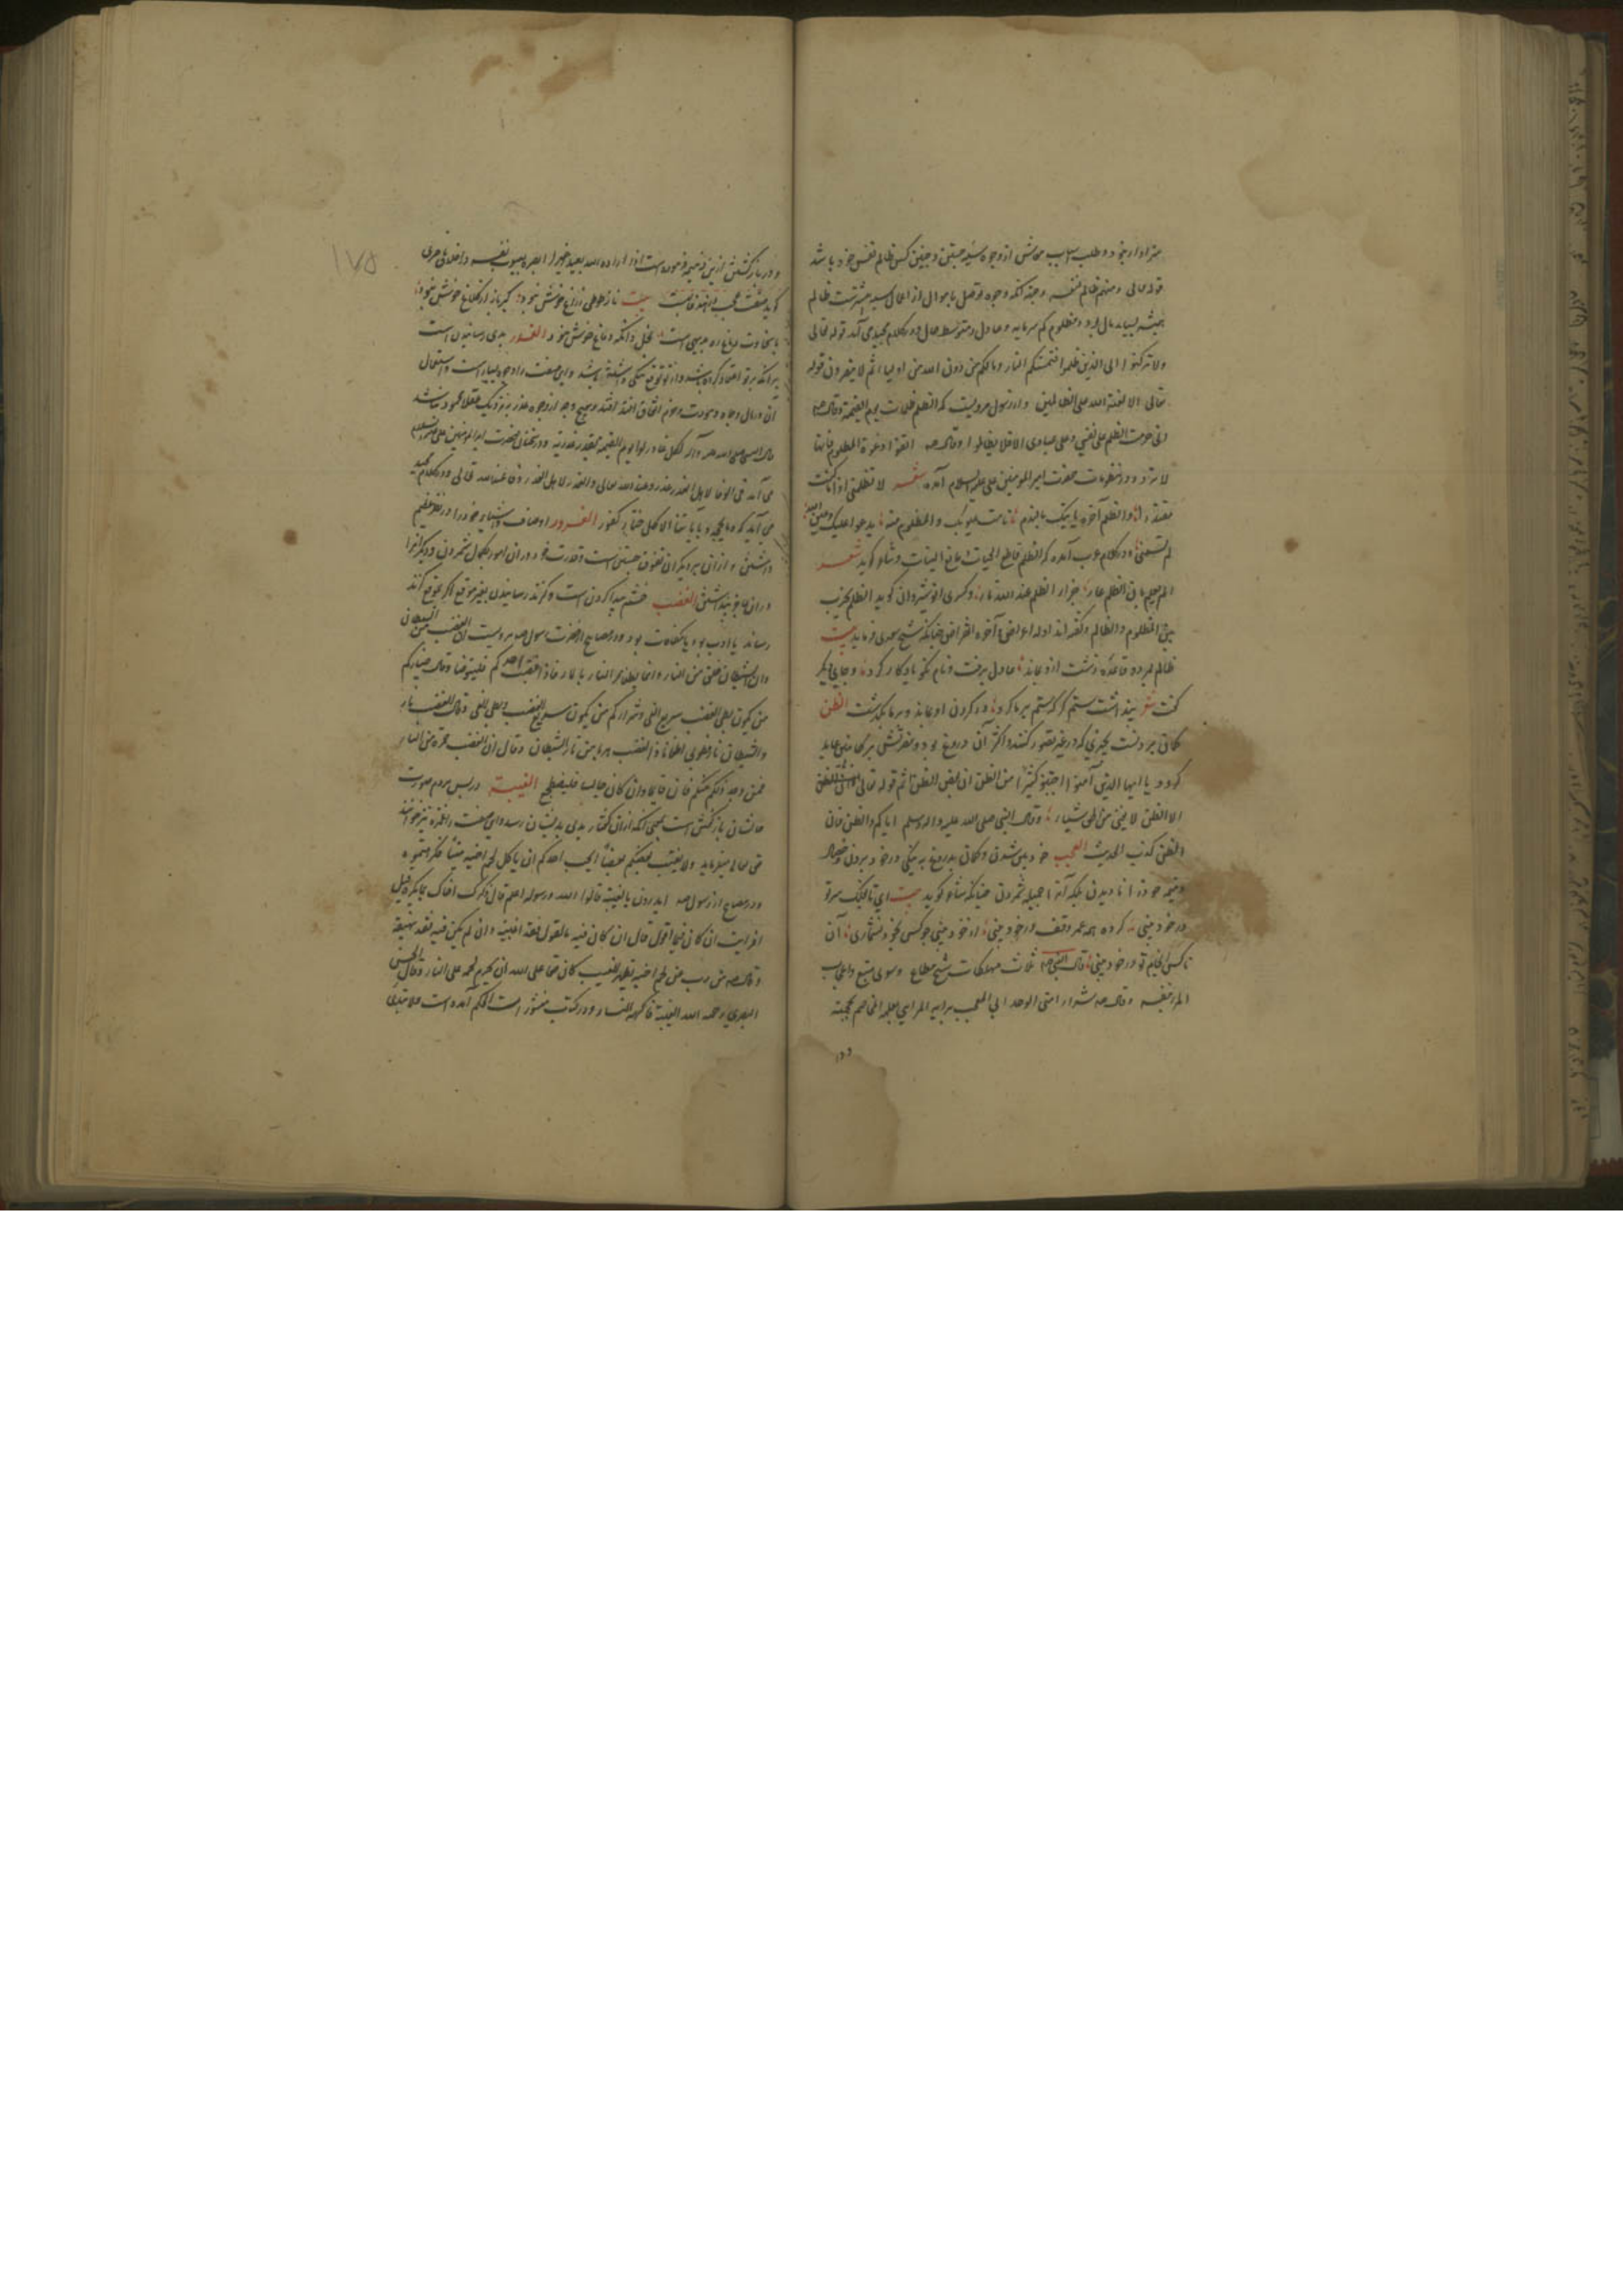 سزاوار خود و طلب سبب معاش از وجوه سیئه جستن و چنین کس ظالم نفس خود باشد
قوله تعالی و منهم ظالم لنفسه و جهة آنکه وجوه توصل باموال از اعمال سیئه بیشترست ظالم
همیشه بسیار مال بود و مظلوم کم سرمایه و عادل متوسط حال و در کلام مجید می آید قوله تعالی
ولا ترکنوا الی الذین ظلموا فتمسکم النار و مالکم من دون الله من اولیاء ثم لا ینصرون قوله
تعالی الا لعنة الله علی الظالمین و از رسول مرویست که الظلم ظلمات یوم القیمة وقال ص
انی حرمت الظلم علی نفسی و علی عبادی الا فلا یظالموا وقال ص اتقوا دعوة المظلوم فانها
لا ترد و در منظومات حضرت امیر المومنین علی علیه السلام آمده شعر لا تظلمن اذا ما کنت
مقتدرا والظلم آخره یاتیک بالندم نامت عیونک و المظلوم منتبه یدعو علیک وعین الله
لم تنم و در کلام عرب آمده که الظلم قاطع الحیات و مانع النبات و شاعر گوید شعر
الم یعلم بان الظلم عار جزاء الظلم عند الله نار و کسری انوشروان گوید الظلم یخرب
بیت المظلوم والظالم و گفته اند اوله اعراض و آخره انقراض چنانکه شیخ سعدی فرماید بیت
ظالم بمرد و قاعده زشت ازو بماند عادل برفت و نام نکو یادگار کرد و جایی دیگر
گفت شعر پنداشت ستمگر که ستم بر ما کرد در گردن او بماند و بر ما بگذشت الظن
گمان بردنست بچیزی که در غیر تصور کنند و اکثر آن دروغ بود و نفرتش بر گمان عاید
گردد یا ایها الذین آمنوا اجتنبوا کثیرا من الظن ان بعض الظن اثم قوله تعالی ان الظن
لا یغنی من الحق شیئا وقال النبی صلی الله علیه و آله وسلم ایاکم والظن فان
الظن اکذب الحدیث العجب خود بین شدن و گمان بدروغ به نیکی در خود بردن و خصال
ذمیمه خود را نادیدن بلکه آنرا جمیله شمردن چنانکه شاعر گوید بیت ای تا بفلک سر تو
در خود بینی کرده همه عمر وقف در خود بینی از خود بینی چو کس بخود نشماری آن
ناکس انجام تو در خود بینی قال النبی ص ثلاث مهلکات شح مطاع و هوی متبع واعجاب
المرء بنفسه وقال ص شرار امتی الوحدانی المعجب برایه المرائی بعمله المخاصم بحجته
۱۷۵
و در بازگشتن ازین ذمیمه فرموده است اذا اراد الله بعبد خیرا ابصره بعیوب نفسه
گوید صفت عجب بیت ناز طوطی زاغ خوش نبود کبر باز از کلاغ خوش نبود
با سخاوت دماغ بد بیهیست بخل وآنگه دماغ خوش نبود الغدر بدی رسانیدن است
بر آنکه برتو اعتماد کرده باشد و از تو توقع نیکی داشته باشد و این صفت را وجوه بسیار است و استعمال
آن در مال و جاه و مودت و حرم اتفاق افتد و هیچ وجه از وجوه غدر به نزدیک عقلا محمود نباشد
قال النبی صلی الله علیه و آله لکل غادر لواء یوم القیمة بقدر غدرته و در سخنان حضرت امیر المومنین علی علیه السلام
می آید فی الوفاء لاهل الغدر غدر عند الله تعالی والغدر لاهل الغدر وفاء عند الله تعالی و در کلام مجید
می آید که وما یجحد بآیاتنا الا کل ختار کفور الغرور اوصاف و اشیاء خود را در نظر عظیم
داشتن و از آن بر دیگران تفوق جستن است و قدرت خود در آن امور بکمال شمردن و دیگرانرا
در آن عاجز پنداشتن الغضب خشم پیدا کردن است و گزند رسانیدن بغیر موقع اگر بموقع گزند
رساند یا ادب بود یا مکافات بود و در مصابیح از حضرت رسول ص مرویست ان الغضب من الشیطان
وان الشیطان خلق من النار وانما یطفأ النار بالماء فاذا غضب احدکم فلیتوضأ وقال خیارکم
من یکون بطئ الغضب سریع الفئ و شرارکم من یکون سریع الغضب بطئ الفئ وقال الغضب نار
وقال ان الغضب جمرة من النار
فمن وجد ذلکم منکم فان کان قائما وان کان جالسا فلیضطجع الغیبة در پس مردم صورت
حالشان بازگفتن است بحیثی که از آن گفتار بدی بدیشان رسد و این صفت را غمز نیز خوانند
حق تعالی میفرماید ولا یغتب بعضکم بعضا ایحب احدکم ان یاکل لحم اخیه میتا فکرهتموه
و در مصابیح از رسول ص اتدرون ما الغیبة قالوا الله ورسوله اعلم قال ذکرک اخاک بما یکره قیل
افرایت ان کان فیما اقول قال ان کان فیه ما تقول فقد اغتبته وان لم یکن فیه فقد بهته
وقال ص من ذب عن لحم اخیه بظهر الغیب کان حقا علی الله ان یحرم لحمه علی النار وقال الحسن
البصری رحمه الله الغیبة فاکهة النساء و در کتاب منثور الحکم آمده است